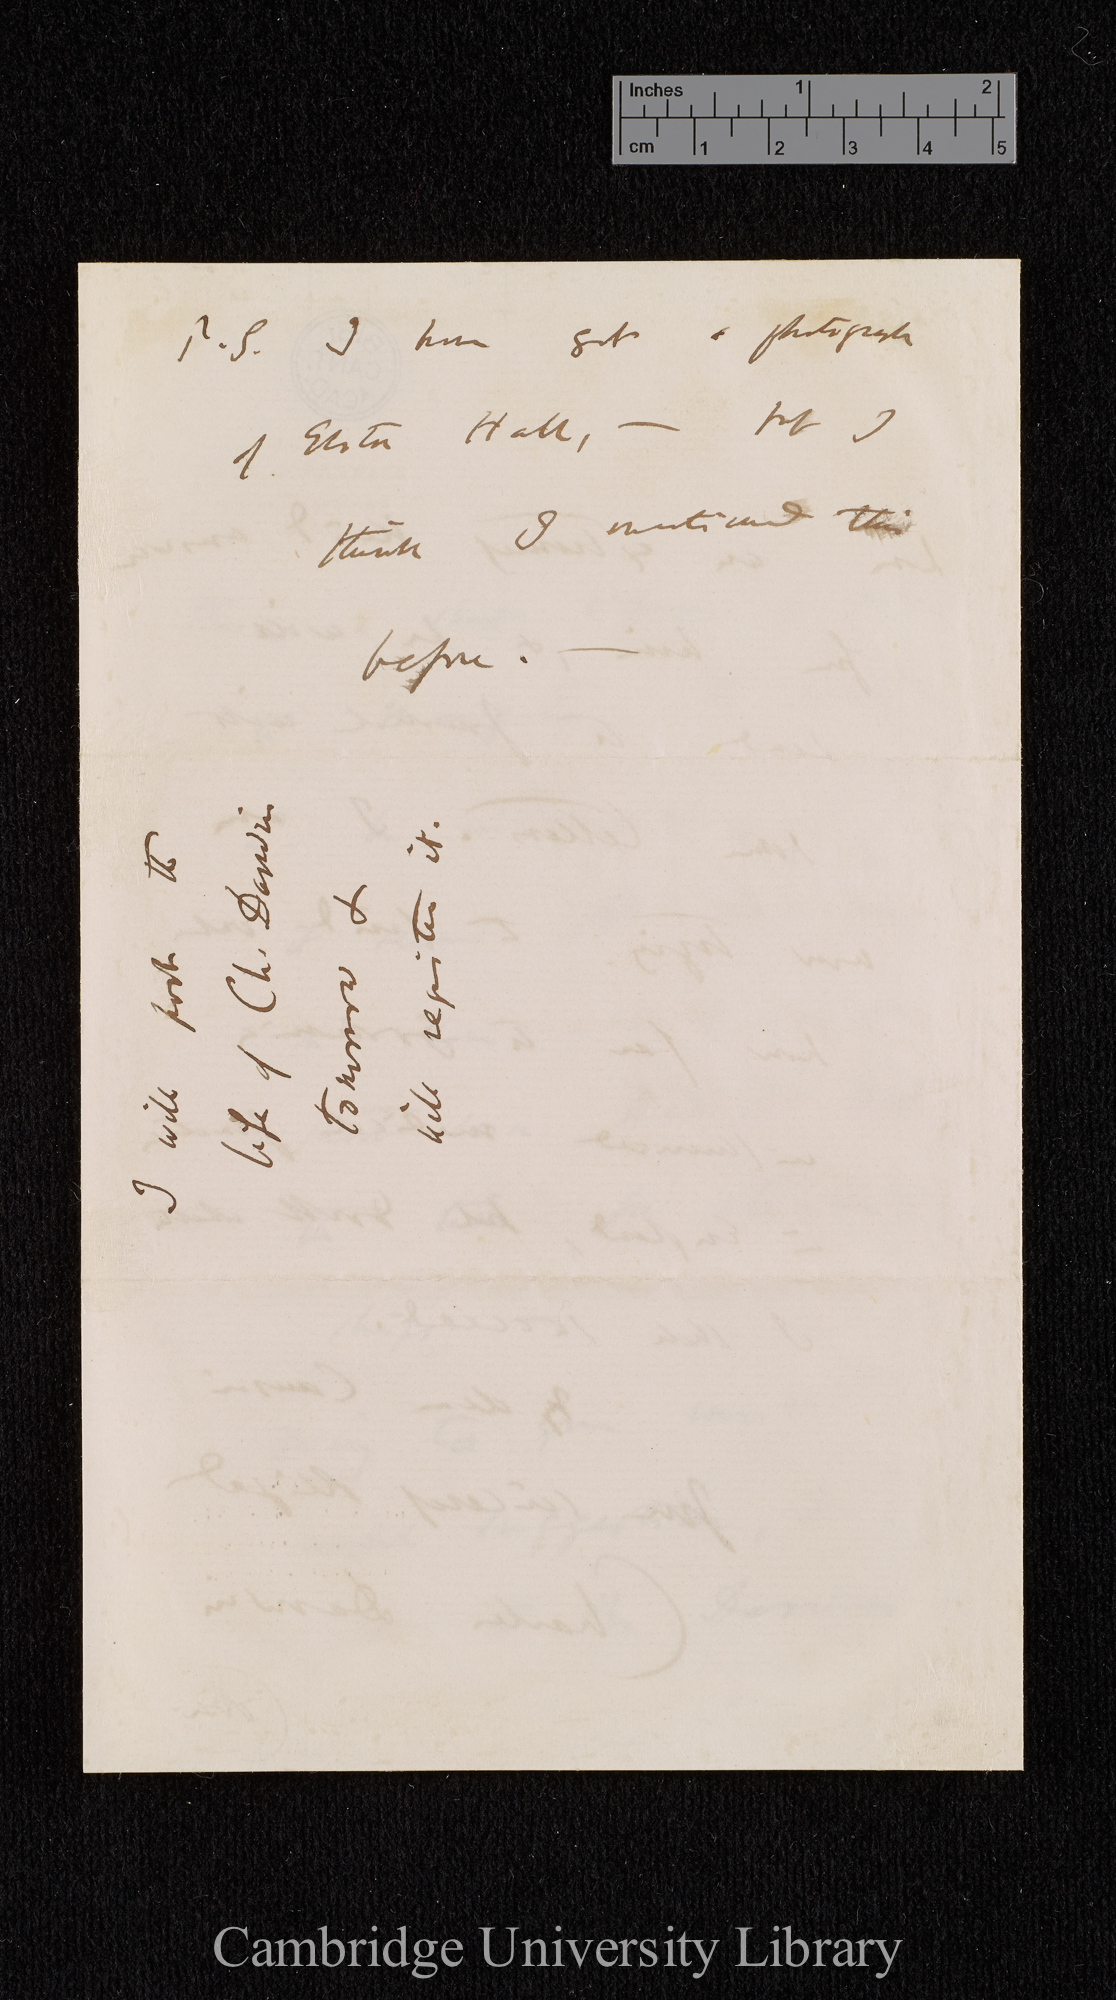 Inches 1 2
cm 1 2 3 4 5
P.S. I have got a photograph
of Elston Hall, — but I
think I mentioned this
before. —
I will post the
life of Ch. Darwin
tomorrow &
will register it.
Cambridge University Library